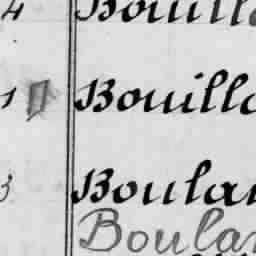 4 Bouill
1 Bouill
3 Boula
Boula